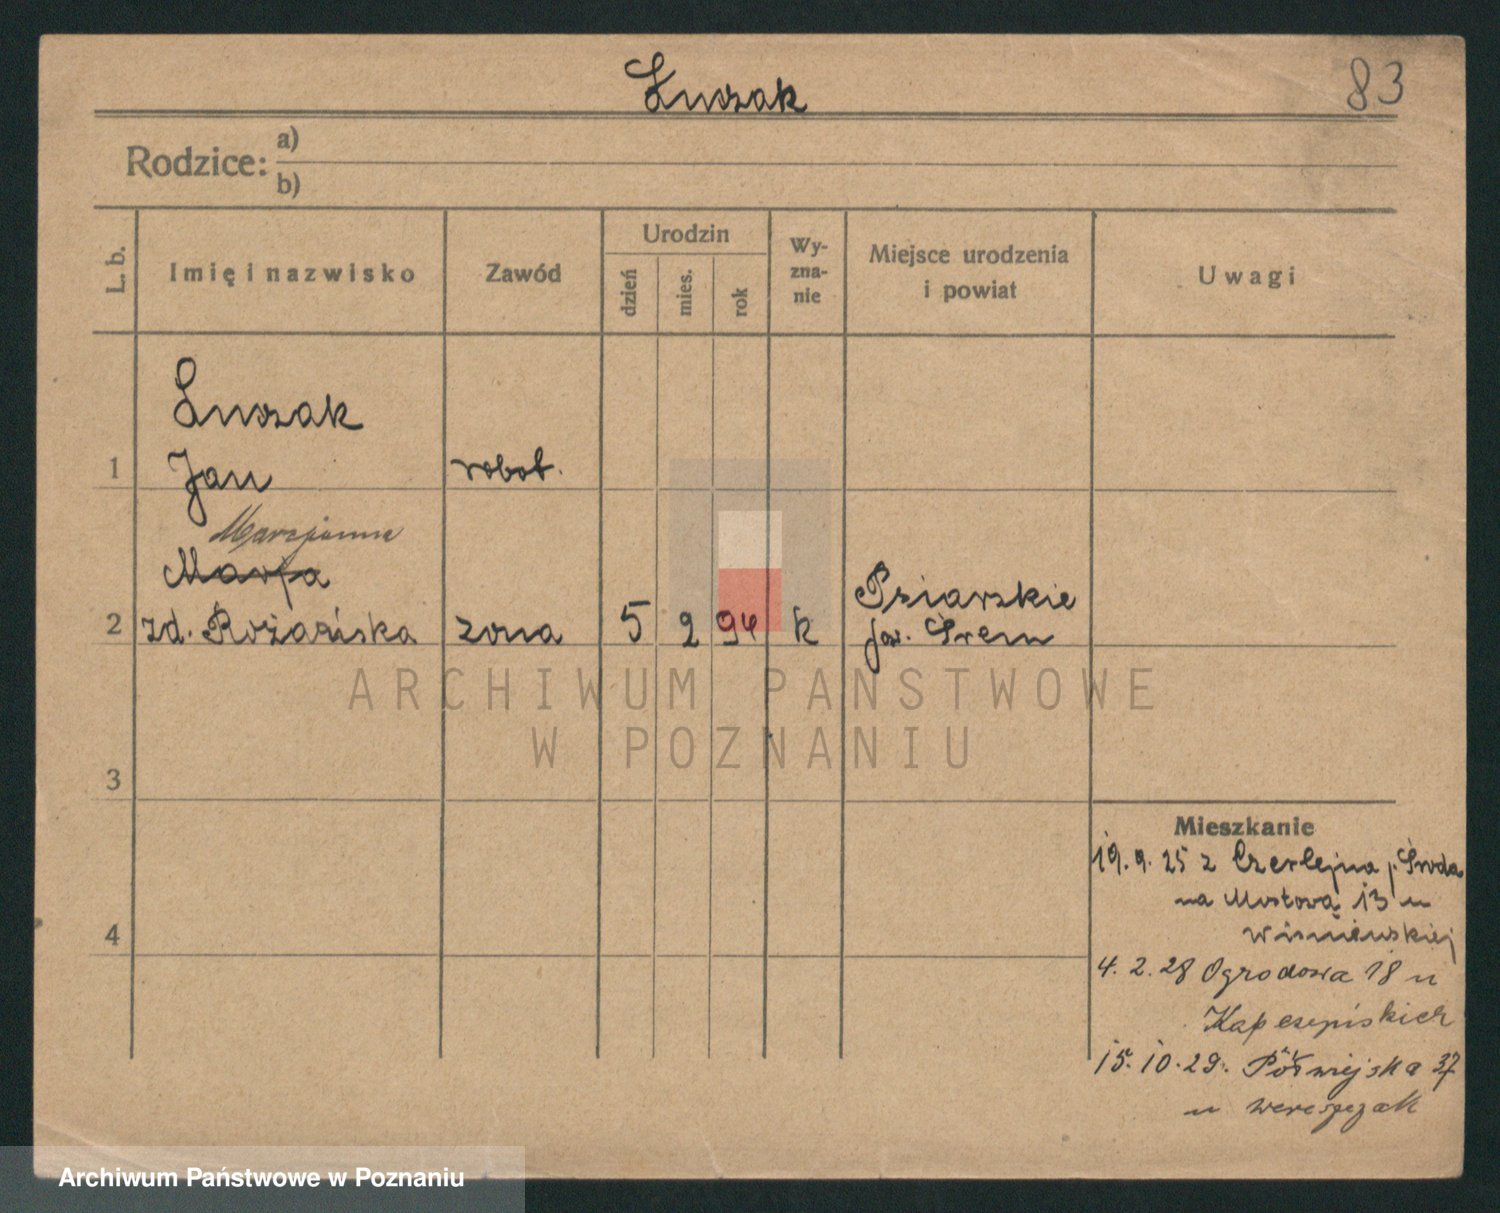 Łuczak
83
Rodzice: a)
b)
L. b.
Imię i nazwisko
Zawód
Urodzin
dzień
mies.
rok
Wy-
zna-
nie
Miejsce urodzenia
i powiat
Uwagi
Łuczak
1 Jan robot.
Marcjanna
Marja
2 zd. Różańska żona 5 2 94 k Psiarskie
pow. Śrem
ARCHIWUM PAŃSTWOWE
W POZNANIU
3
4
Mieszkanie
19. 9. 25 z Czerlejna p. Środa
na Mostową 13 u
Wiśniewskiej
4. 2. 28 Ogrodowa 18 u
15. 10. 29. Półwiejska 37
u
Archiwum Państwowe w Poznaniu